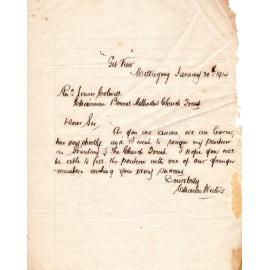 "Get View"
Mittagong January 30th 1914
Rev. James Colwell
Chairman Bowral Methodist Church Trust
Dear Sir,
As you are aware we are leaving
here very shortly and I wish to resign my position
as Secretary of the Church Trust. I hope you will
be able to fill the position with one of our younger
members wishing you every success
Yours truly
Charles